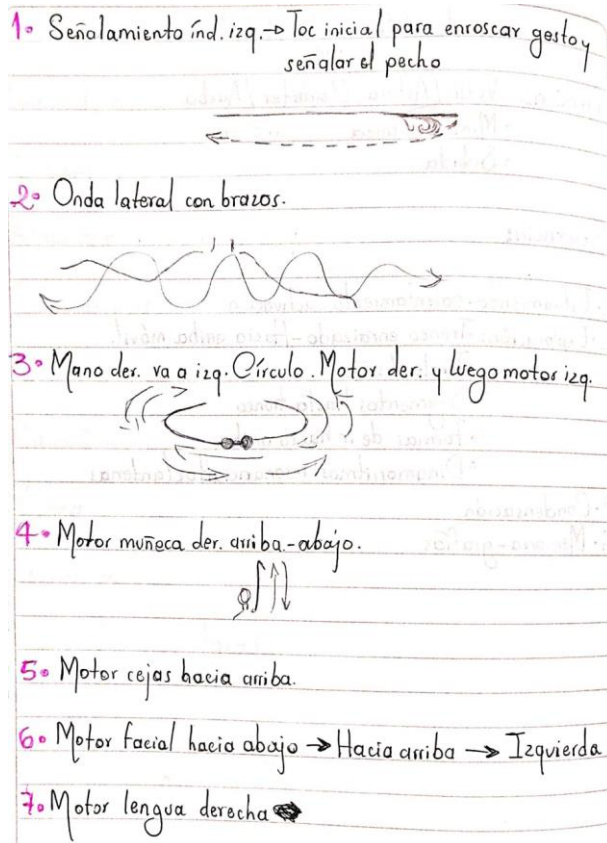 1. Señalamiento índ. izq. → Toc inicial para enroscar gesto y
señalar el pecho
2. Onda lateral con brazos.
3. Mano der. va a izq. Círculo. Motor der. y luego motor izq.
4. Motor muñeca der. arriba-abajo.
5. Motor cejas hacia arriba.
6. Motor facial hacia abajo → Hacia arriba → Izquierda
7. Motor lengua derecha